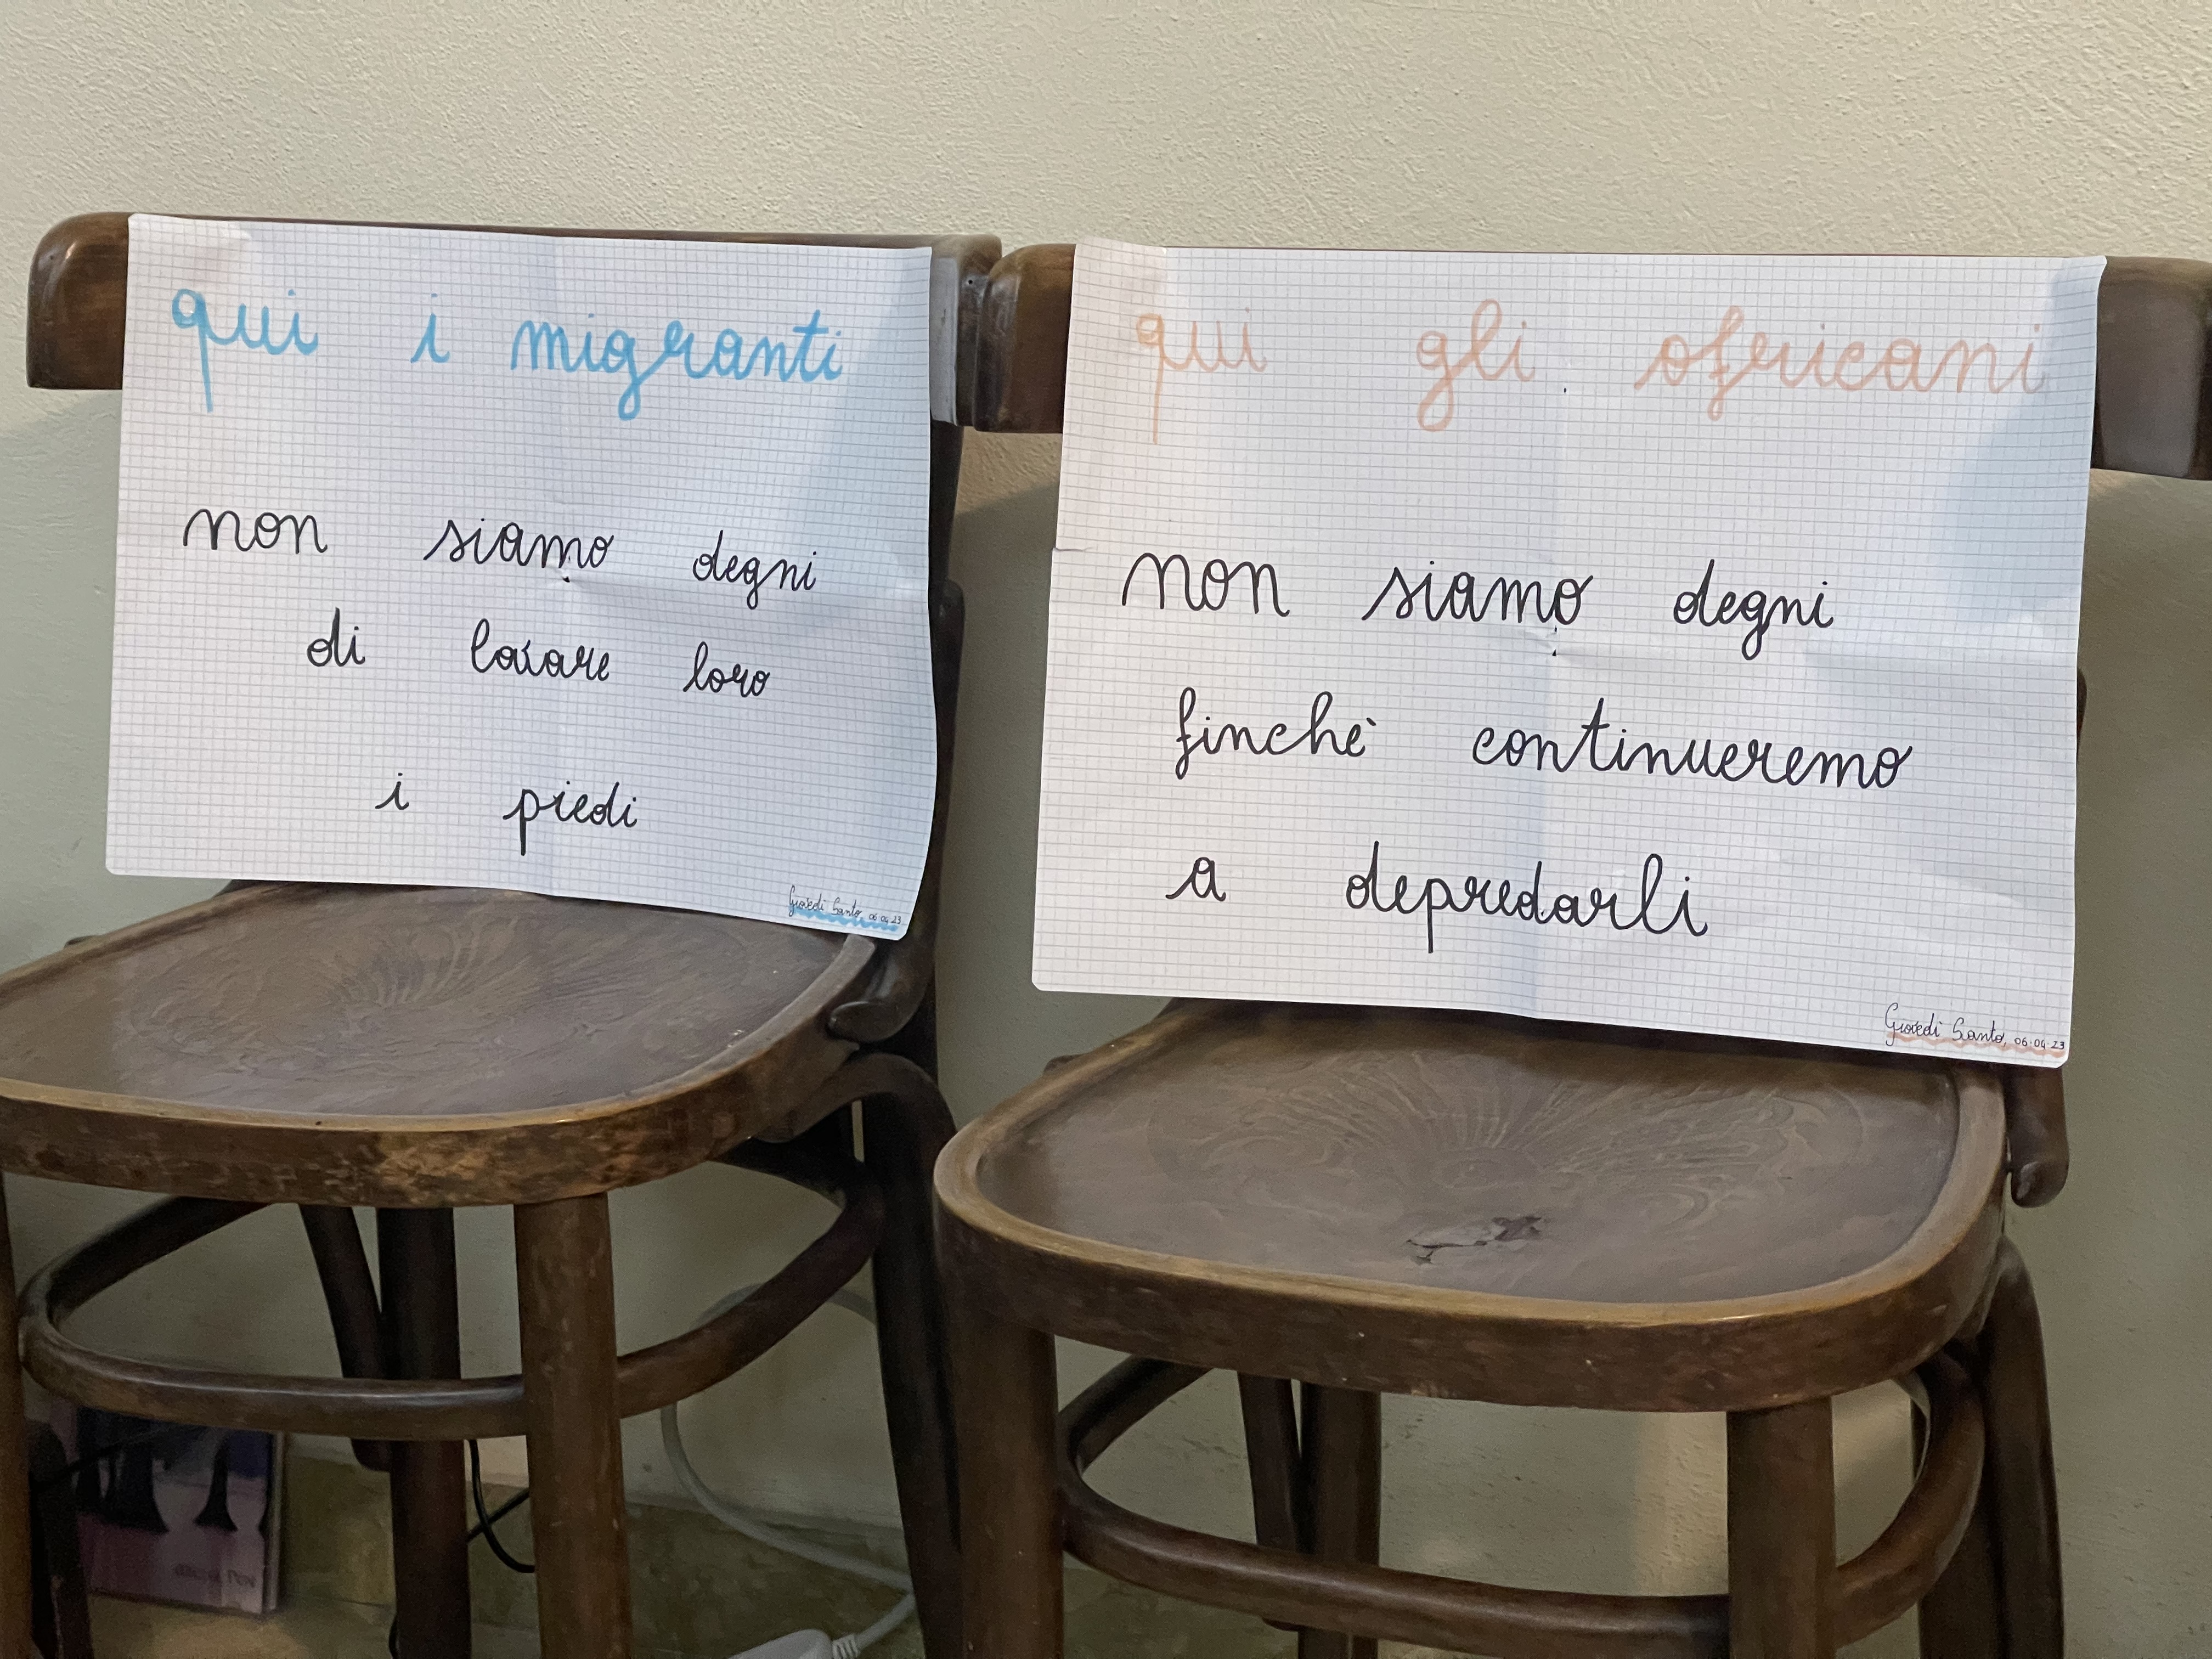 qui i migranti
non siamo degni
di lavare loro
i piedi
Giovedì Santo, 06.04.23
qui gli africani
non siamo degni
finchè continueremo
a depredarli
Giovedì Santo, 06.04.23